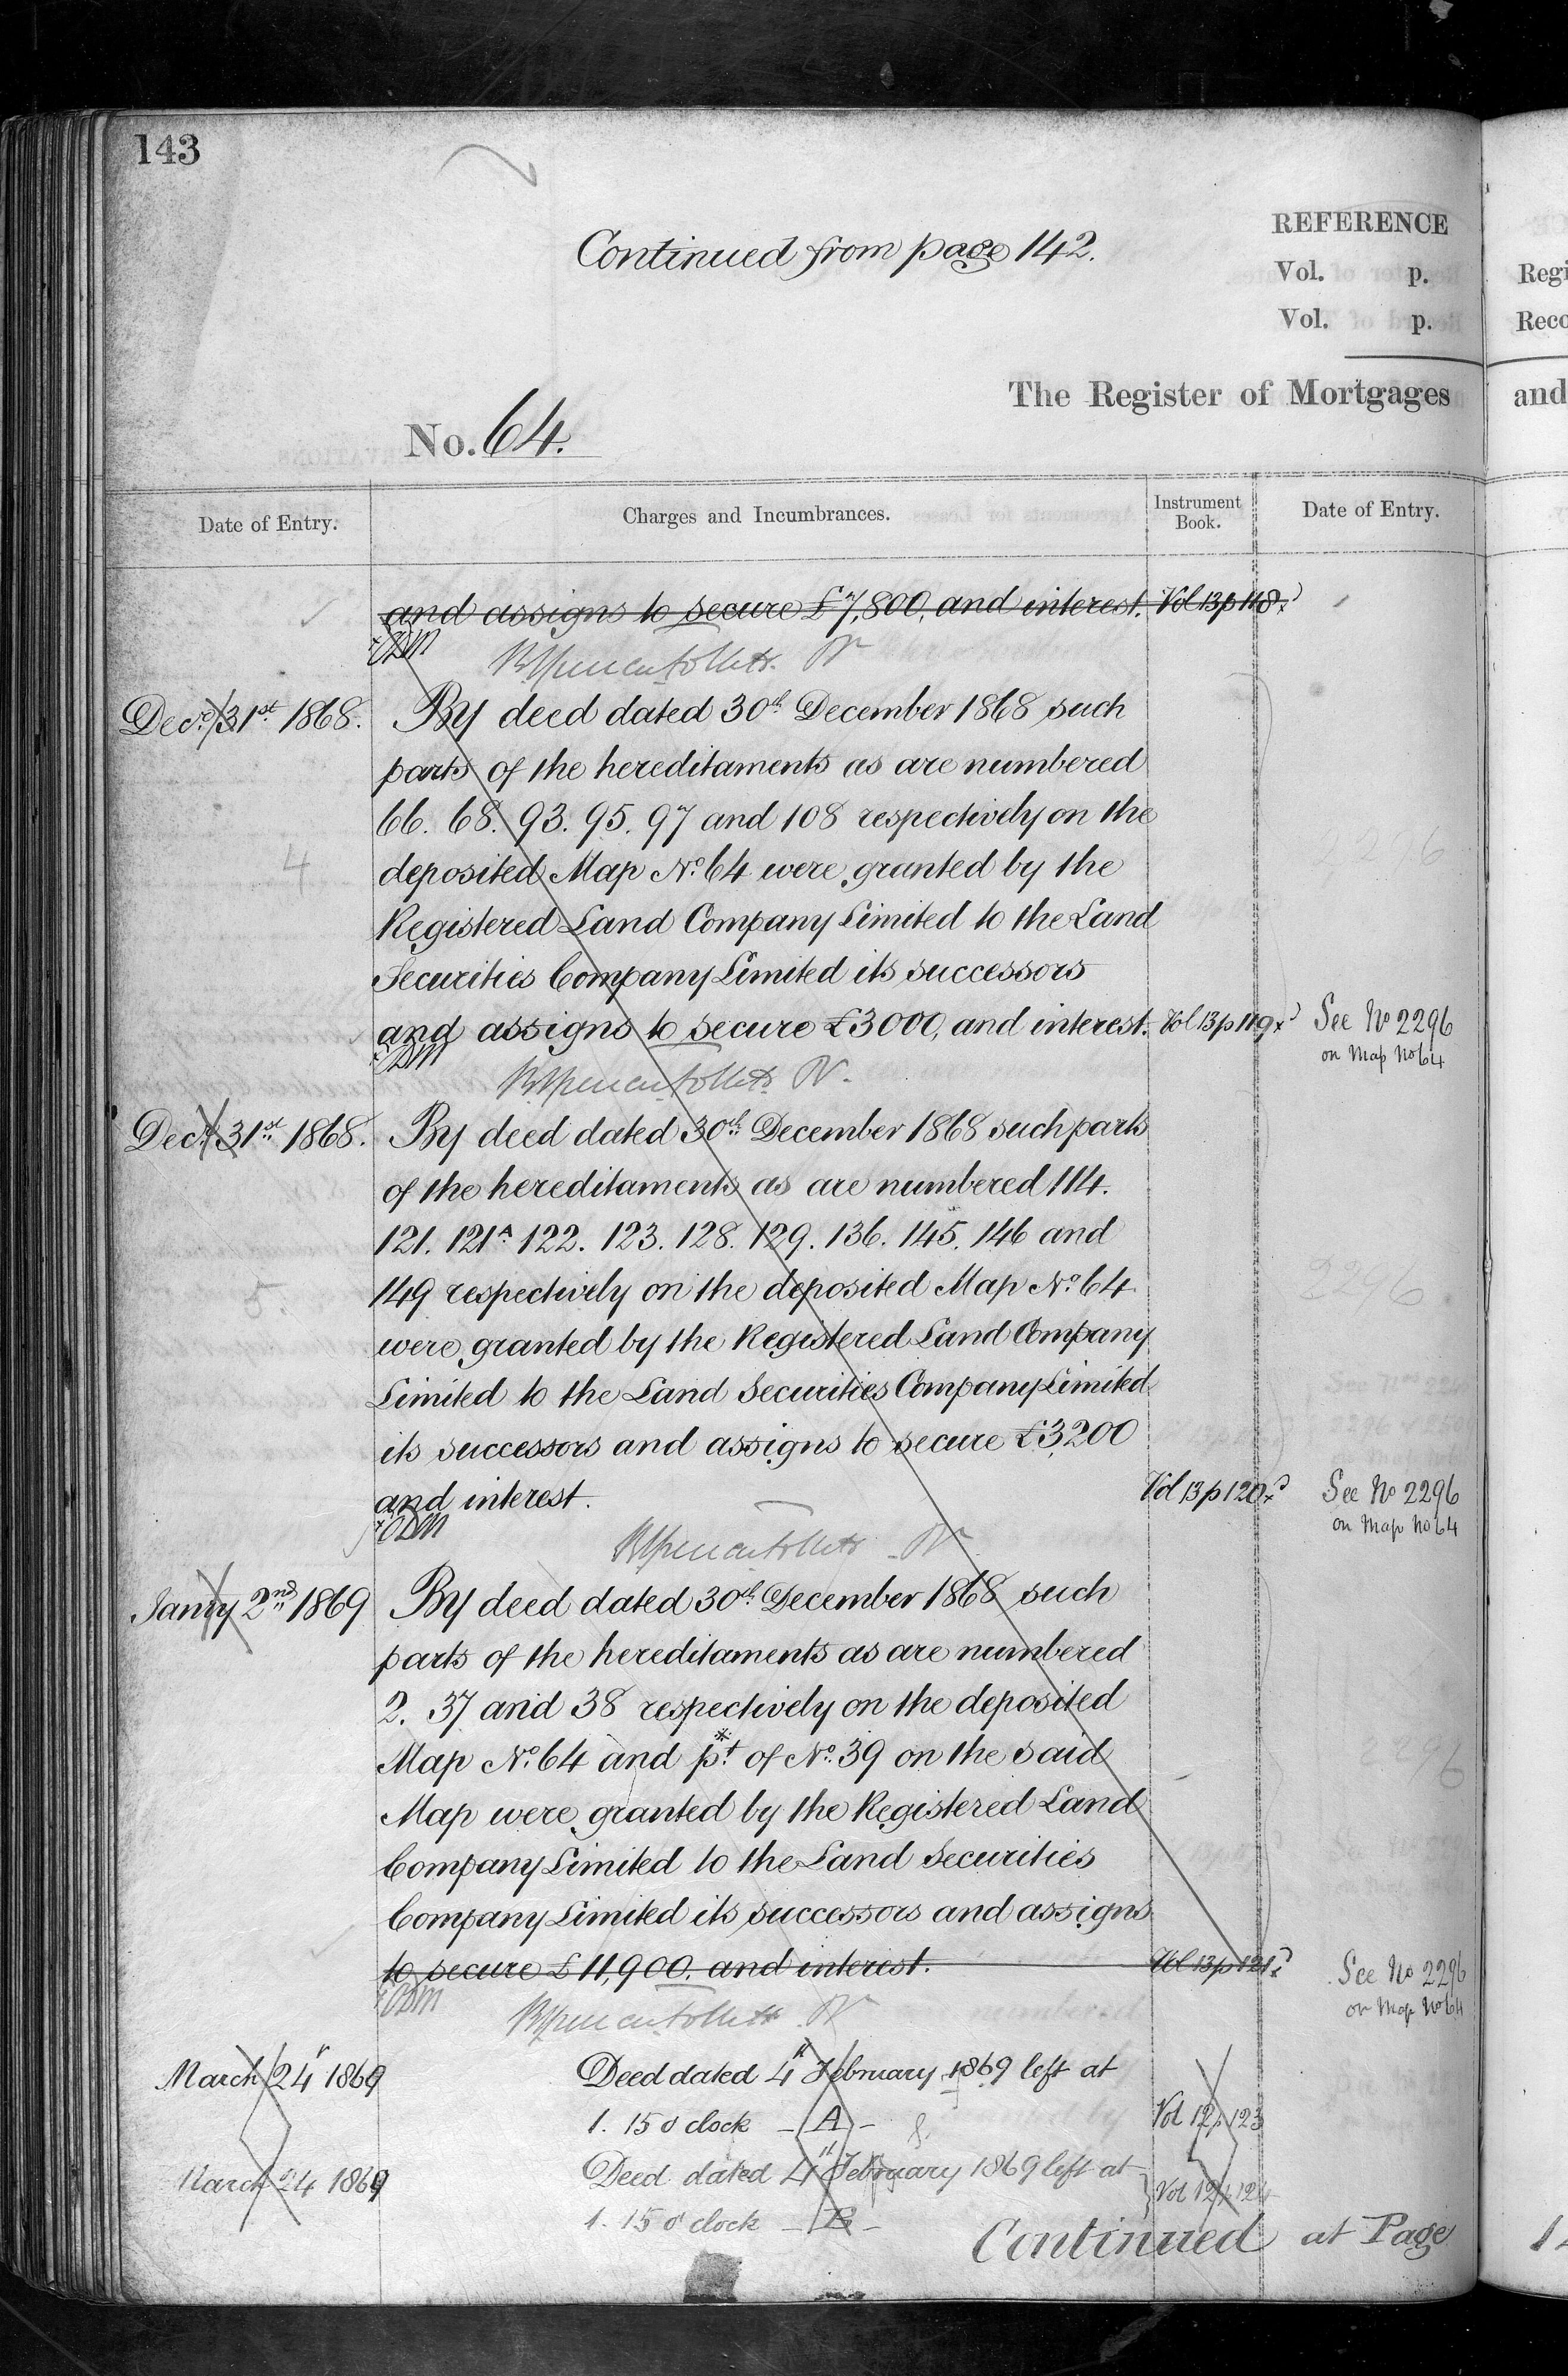 143
Continued from page 142.
REFERENCE
Vol. p.
Vol. p.
Regi
Reco
The Register of Mortgages
and
No. 64.
Date of Entry.
Charges and Incumbrances.
Instrument Book.
Date of Entry.
and assigns to secure £7,800, and interest. Vol 13 p 118
Decr. 31st 1868. By deed dated 30th December 1868 such
parts of the hereditaments as are numbered
66. 68. 93. 95. 97 and 108 respectively on the
2296
4 deposited Map No. 64 were granted by the
Registered Land Company Limited to the Land
Securities Company Limited its successors
and assigns to secure £3000, and interest. Vol 13 p 119 See No 2296
on Map No 64
Decr. 31st 1868. By deed dated 30th December 1868 such parts
of the hereditaments as are numbered 114.
121. 121A 122. 123. 128. 129. 136. 145. 146 and
5. 149 respectively on the deposited Map No. 64 2296
were granted by the Registered Land Company
Limited to the Land Securities Company Limited
its successors and assigns to secure £3,200
and interest. Vol 13 p 120 See No 2296
on Map No 64
Janry 2nd 1869 By deed dated 30th December 1868 such
parts of the hereditaments as are numbered
2. 37 and 38 respectively on the deposited
Map No. 64 and pt. of No. 39 on the said
Map were granted by the Registered Land
Company Limited to the Land Securities
Company Limited its successors and assigns
to secure £11,900. and interest. Vol 13 p 121 See No 2296
on Map No 64
March 24 1869 Deed dated 4th February 1869 left at
1. 15 o'clock - A - Vol 12 p 123
March 24 1869 Deed dated 4th February 1869 left at
1. 15 o'clock - B - Vol 12 p 124
Continued at Page